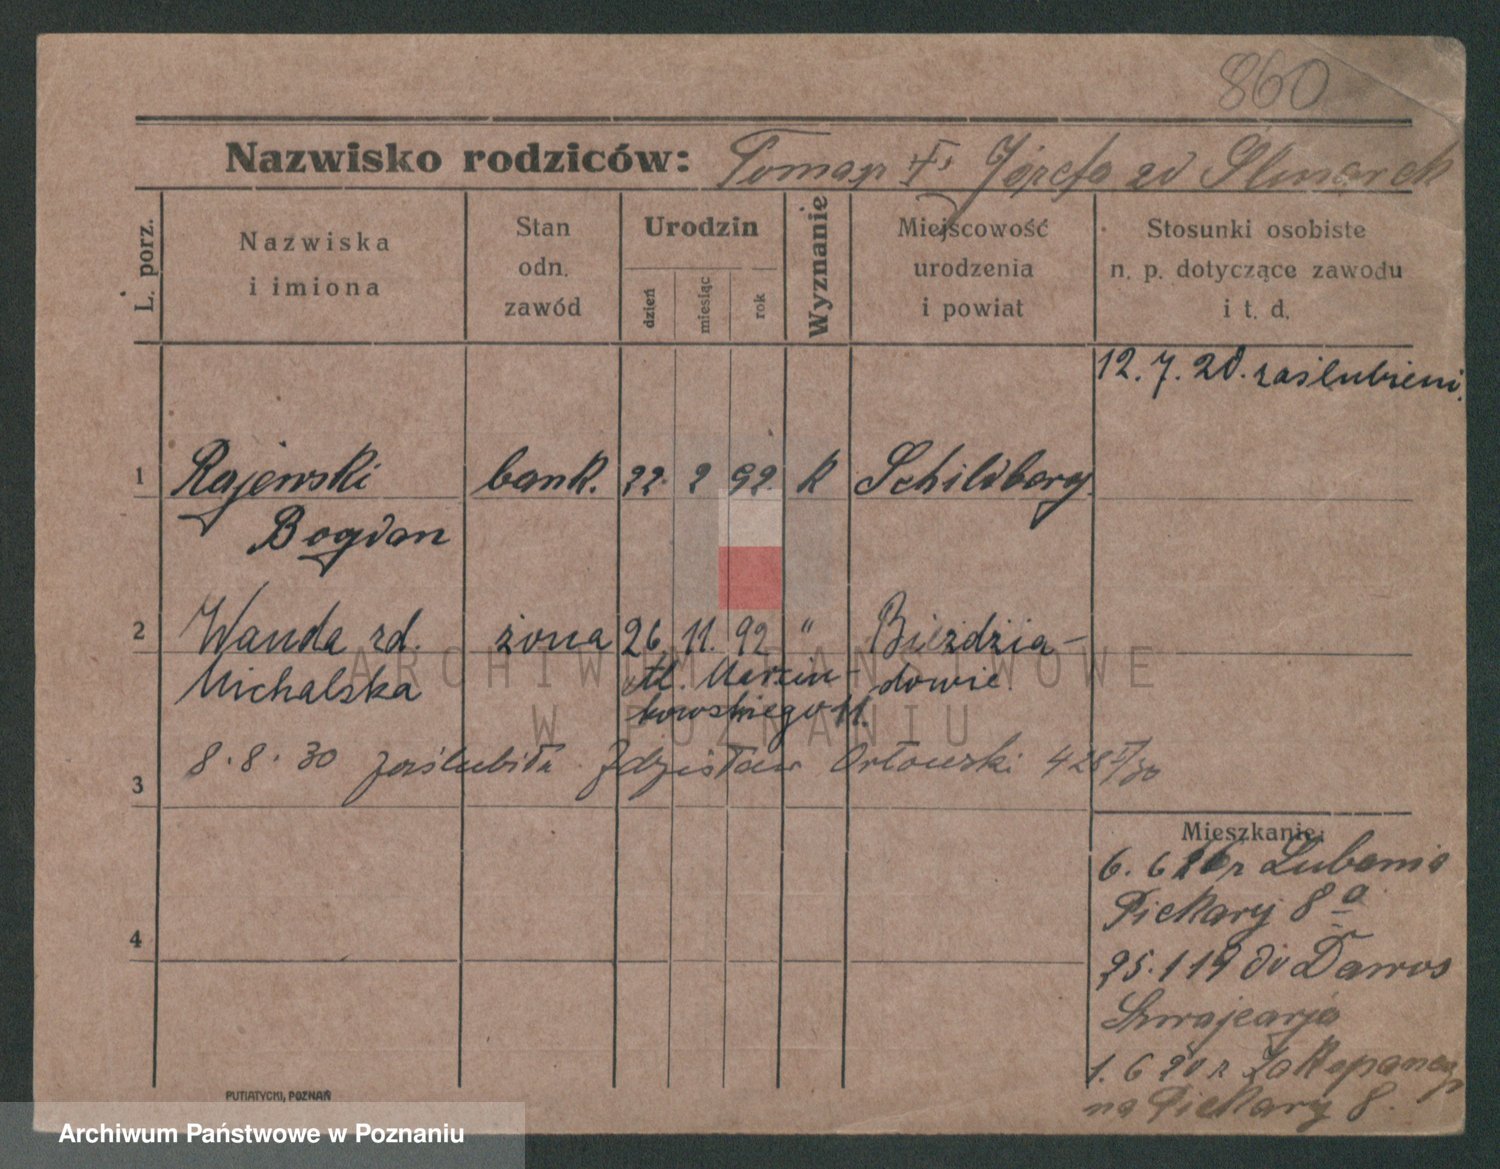 860
Nazwisko rodziców: Tomasz Józefa zd Ślmarek
L. porz.
Nazwiska
i imiona
Stan
odn.
zawód
Urodzin
dzień
miesiąc
rok
Wyznanie
Miejscowość
urodzenia
i powiat
Stosunki osobiste
n. p. dotyczące zawodu
i t. d.
12.7.20. zaślubieni.
1 Rajewski bank. 22. 2 92. k Schildberg.
Bogdan
2 Wanda zd. żona 26 11. 92 " Bieździa-
Michalska Marcin- dowie
kowskiego 11.
3 8.8.30 zaślubiła Zdzisław Orłowski
4
Mieszkanie:
6. 6 z Lubonia
Piekary 8 a
25.1 19 do Dawos
Szwajcarja
1. 6 20 z Zakopanego
na Piekary 8.
PUTIATYCKI, POZNAŃ
ARCHIWUM PAŃSTWOWE
W POZNANIU
Archiwum Państwowe w Poznaniu